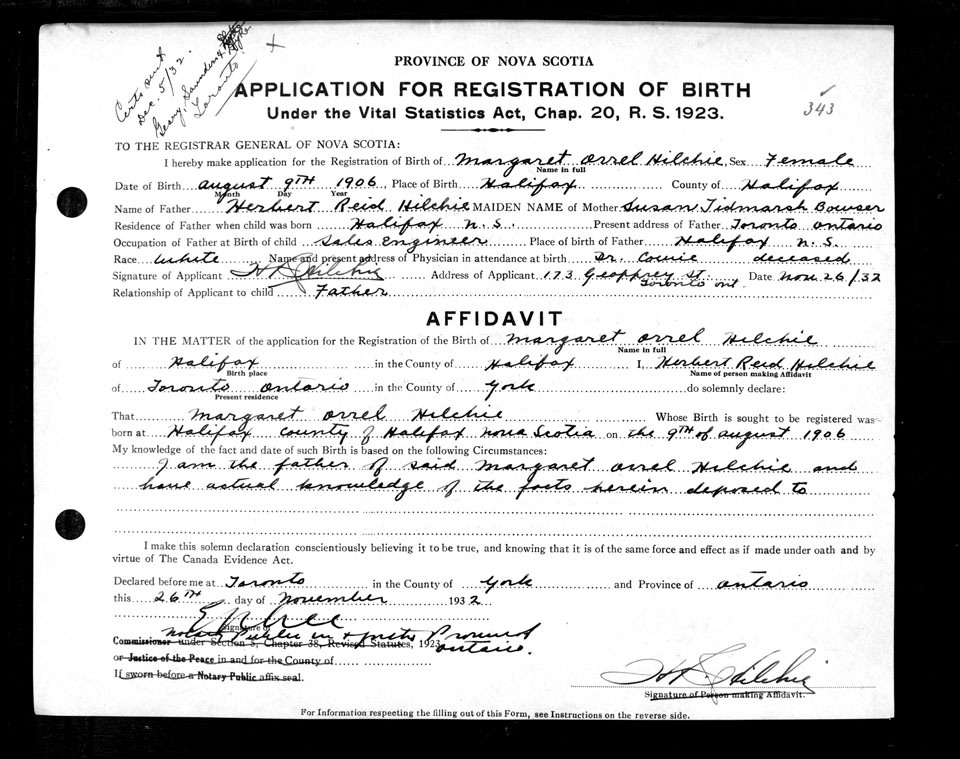 Certs sent
Dec. 5/32.
Geary, Saunders &
Toronto
X
PROVINCE OF NOVA SCOTIA
APPLICATION FOR REGISTRATION OF BIRTH
Under the Vital Statistics Act, Chap. 20, R. S. 1923.
343
TO THE REGISTRAR GENERAL OF NOVA SCOTIA:
I hereby make application for the Registration of Birth of Margaret Orrel Hilchie Sex Female
Name in full
Date of Birth August 9TH 1906, Place of Birth Halifax County of Halifax
Month Day Year
Name of Father Herbert Reid Hilchie MAIDEN NAME of Mother Susan Tidmarsh Bowser
Residence of Father when child was born Halifax N.S. Present address of Father Toronto Ontario
Occupation of Father at Birth of child Sales Engineer Place of birth of Father Halifax N.S.
Race White Name and present address of Physician in attendance at birth Dr. Cowie deceased
Signature of Applicant H R Hilchie Address of Applicant 173 Geoffrey St. Toronto Ont. Date Nov. 26/32
Relationship of Applicant to child Father
AFFIDAVIT
IN THE MATTER of the application for the Registration of the Birth of Margaret Orrel Hilchie
Name in full
of Halifax in the County of Halifax I, Herbert Reid Hilchie
Birth place Name of person making Affidavit
of Toronto Ontario in the County of York do solemnly declare:
Present residence
That Margaret Orrel Hilchie Whose Birth is sought to be registered was
born at Halifax County of Halifax Nova Scotia on the 9TH of August 1906
My knowledge of the fact and date of such Birth is based on the following Circumstances:
I am the father of said Margaret Orrel Hilchie and
have actual knowledge of the facts herein deposed to
I make this solemn declaration conscientiously believing it to be true, and knowing that it is of the same force and effect as if made under oath and by
virtue of The Canada Evidence Act.
Declared before me at Toronto in the County of York and Province of Ontario
this 26TH day of November 1932
Signature of
Notary Public in & for the Province
Commissioner under Section 5, Chapter 38, Revised Statutes, 1923 Ontario.
or Justice of the Peace in and for the County of
If sworn before a Notary Public affix seal.
H R Hilchie
Signature of Person making Affidavit.
For Information respecting the filling out of this Form, see Instructions on the reverse side.